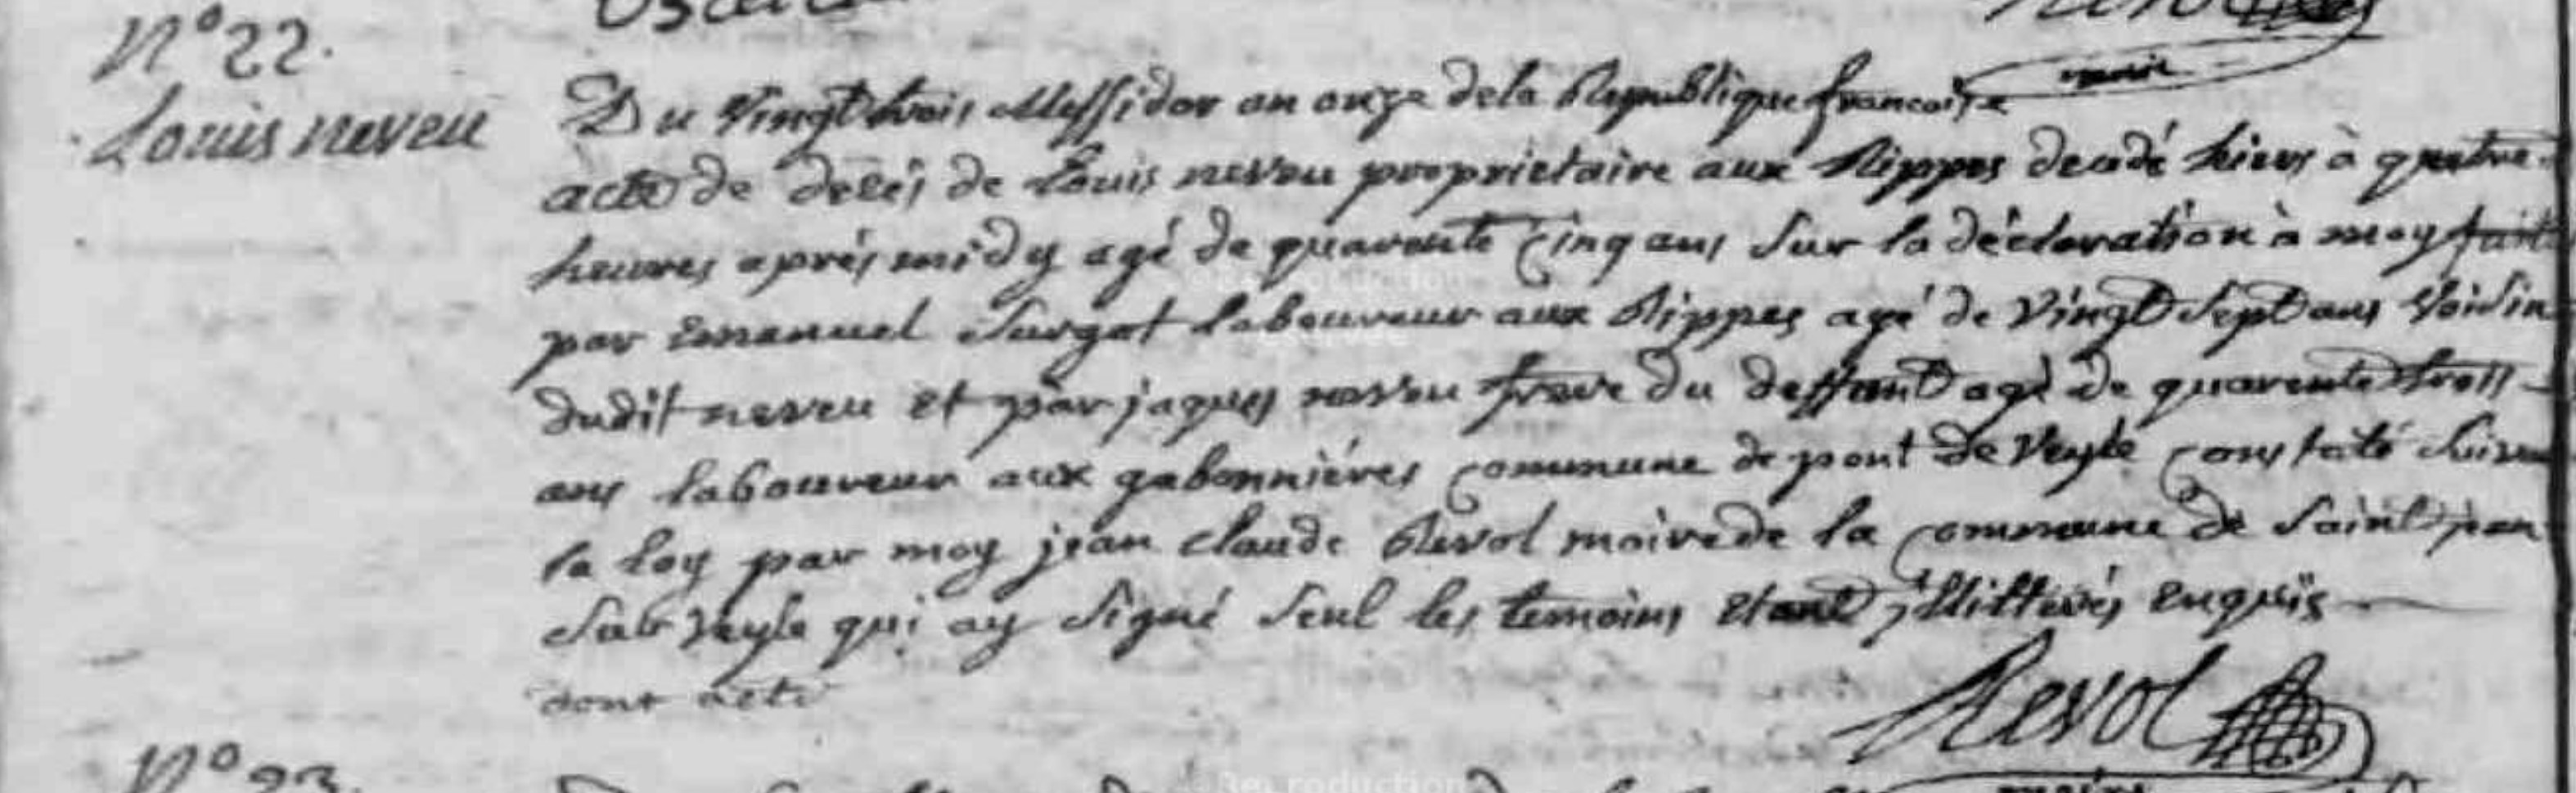 N° 22.
Louis neveu
Du vingt trois Messidor an onze dela Republique francoise
acte de decés de Louis neveu proprietaire aux Rippes decedé hiers à quatre
heures aprés midy agé de quarente cinq ans sur la déclaration à moy faite
par Emanuel Surgot laboureur aux Rippes agé de vingt sept ans voisin
dudit neveu et par jaques neveu frere du deffunt agé de quarente trois
ans laboureur aux gabonniéres commune de pont de veyle constaté suivant
la loy par moy jean claude Revol maire de la commune de saint jean
sur veyle qui ay signé seul les temoins etant illitterés enquis
dont acte
Revol
maire
N° 23.